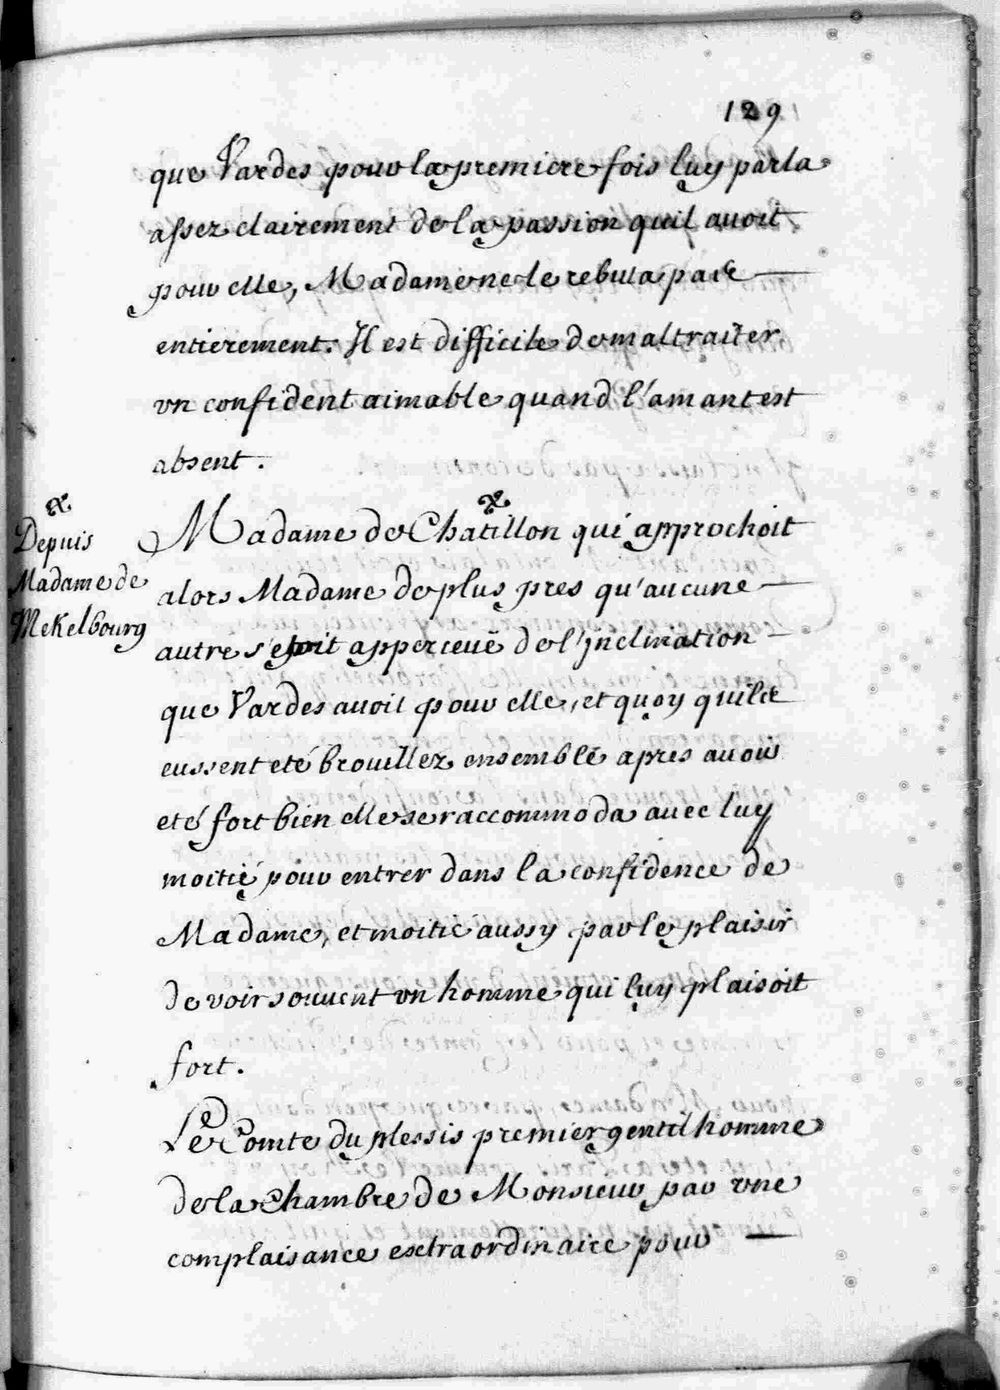 129
que Vardes pour la premiere fois luy parla
assez clairement de la passion quil avoit
pour elle, Madame ne le rebuta pas
entierement. Il est difficile de maltraiter
vn confident aimable quand l'amant est
absent.
Depuis
Madame de
Mekelbourg
Madame de Chatillon qui approchoit
alors Madame de plus pres qu'aucune
autre s'etoit apperceuë de l'jnclination
que Vardes avoit pour elle, et quoy quils
eussent eté broüillez ensemble apres avoir
eté fort bien elle se raccommoda avec luy
moitié pour entrer dans la confidence de
Madame, et moitie aussy par le plaisir
de voir souvent vn homme qui luy plaisoit
fort.
Le Comte du plessis premier gentil homme
de la Chambre de Monsieur par vne
complaisance extraordinaire pour